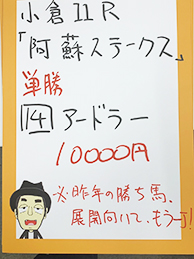 小倉11R
「阿蘇ステークス」
単勝
14 アードラー
10000円
※昨年の勝ち馬、
展開向いて、もう一丁!